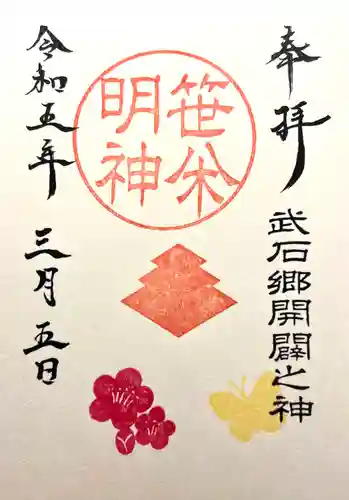 奉拝
武石郷開闢之神
笹米
明神
令和五年 三月 五日